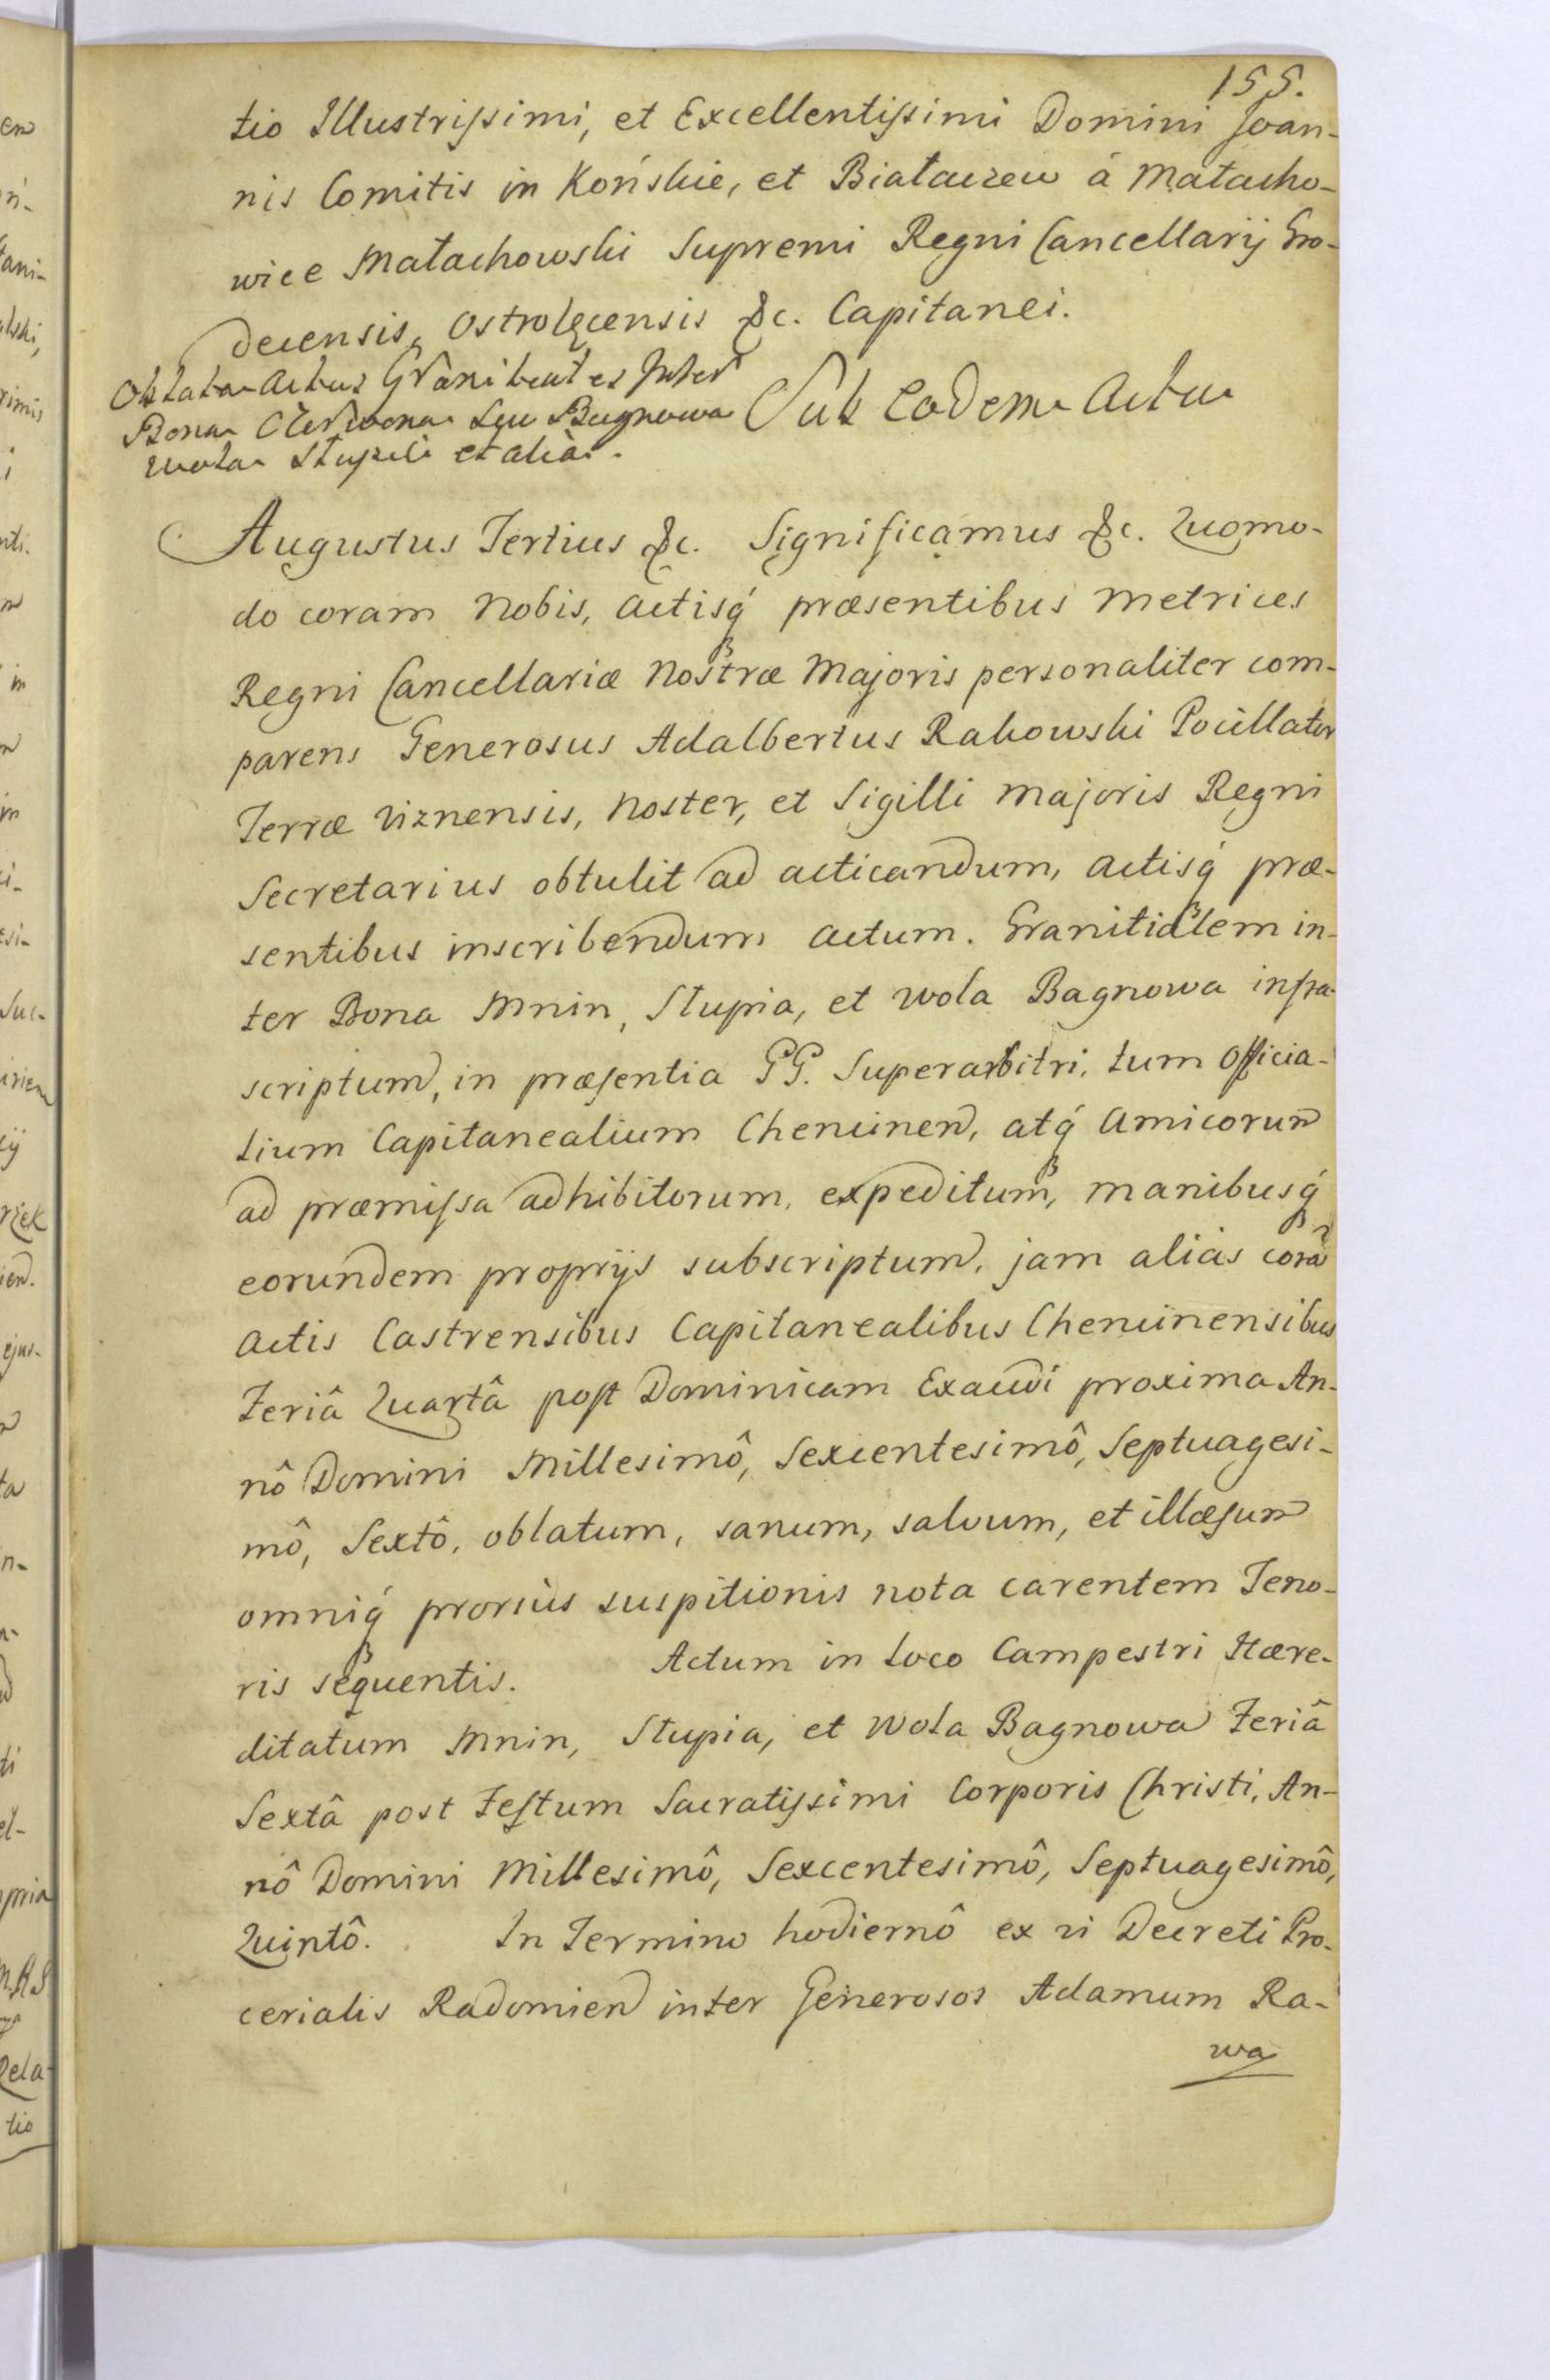 155.
tio Illustrissimi, et Excellentissimi Domini Joan-
nis Comitis in Końskie, et Białaczew á Małacho-
wice Małachowski Supremi Regni Cancellarij Gro-
decensis, Ostrolęcensis &c. Capitanei.
Oblata Actus Granitiales Inter
Bona Czerwona Seu Bagnowa
Wola Słupia et alia.
Sub Eodem Actu
Augustus Tertius &c. Significamus &c. Quomo-
do coram Nobis, Actisq́ præsentibus Metrices
Regni Cancellariæ Nostræ Majoris personaliter com-
parens Generosus Adalbertus Rakowski Pocillator
Terræ Viznensis, Noster, et Sigilli Majoris Regni
Secretarius obtulit ad acticandum, actisq́ præ-
sentibus inscribendum Actum. Granitialem in-
ter Bona Mnin, Słupia, et Wola Bagnowa infra
scriptum, in præsentia GG. Superarbitri, tum Officia-
lium Capitanealium Chencinen, atq́ Amicorum
ad præmissa adhibitorum, expeditum, manibusq́
eorundem proprijs subscriptum, jam alias corã
Actis Castrensibus Capitanealibus Chencinensibus
Feriâ Quartâ post Dominicam Exaudi proxima An-
nô Domini Millesimô, Sexcentesimô, Septuagesi-
mô, Sextô, oblatum, sanum, salvum, et illæsum
omniq́ prorsùs suspitionis nota carentem Teno-
ris sequentis. Actum in Loco Campestri Hære-
ditatum Mnin, Słupia, et Wola Bagnowa Feriâ
Sextâ post Festum Sacratissimi Corporis Christi, An-
nô Domini Millesimô, Sexcentesimô, Septuagesimô,
Quintô. In Termino hodiernô ex vi Decreti Pro-
cerialis Radomien inter Generosos Adamum Ra-
wa